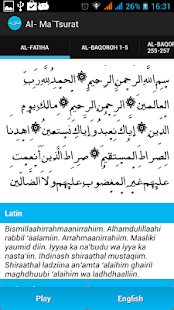 16:31
Al- Ma`Tsurat
AL-FATIHA
AL-BAQOROH 1-5
AL-BAQO
255-257
بِسْمِ اللَّهِ الرَّحْمَنِ الرَّحِيمِ الْحَمْدُ لِلَّهِ رَبِّ
الْعَالَمِينَ الرَّحْمَنِ الرَّحِيمِ مَالِكِ يَوْمِ
الدِّينِ إِيَّاكَ نَعْبُدُ وَإِيَّاكَ نَسْتَعِينُ اهْدِنَا
الصِّرَاطَ الْمُسْتَقِيمَ صِرَاطَ الَّذِينَ أَنْعَمْتَ
عَلَيْهِمْ غَيْرِ الْمَغْضُوبِ عَلَيْهِمْ وَلَا الضَّالِّينَ
Latin
Bismillaahirrahmaanirrahiim. Alhamdulillaahi
rabbil 'aalamiin. Arrahmaanirrahiim. Maaliki
yaumid diin. Iyyaka na'budu wa iyya ka
nasta'iin. Ihdinash shiraathal mustaqiim.
Shiraathal ladziina an'amta alaihim ghairil
maghdhuubi 'alaihim wa ladhdhaalliin.
Play
English